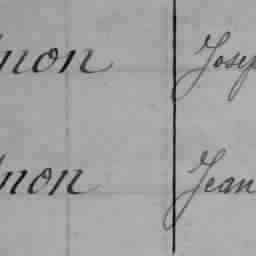 non Josep
non Jean